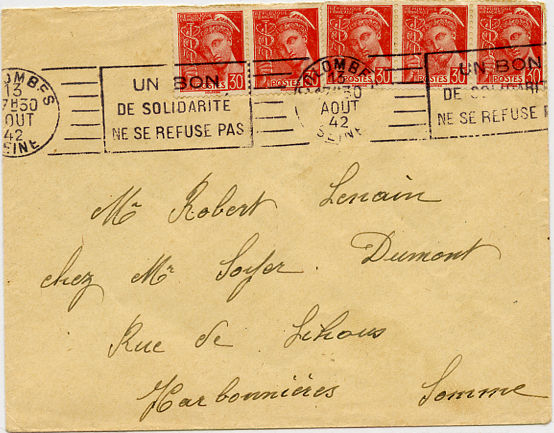 POSTES 30 POSTES 30 POSTES 30 POSTES 30 POSTES
COLOMBES
13
17H30
AOUT
42
SEINE
UN BON
DE SOLIDARITE
NE SE REFUSE PAS
COLOMBES
13
17H30
AOUT
42
SEINE
UN BON
DE SOLIDARI
NE SE REFUSE P
Mr Robert Lenain
chez Mr Soyer. Dumont
Rue de Lihons
Harbonnières Somme